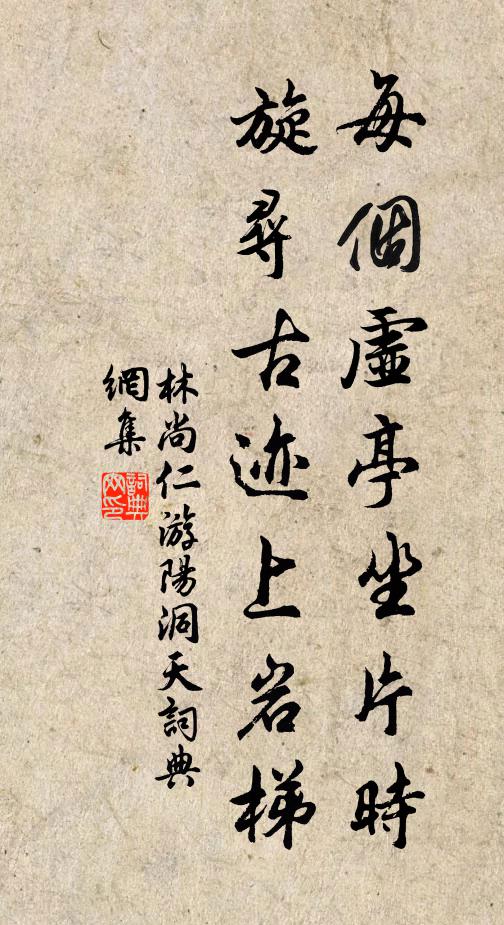 每個虛亭坐片時
旋尋古迹上岩梯
林尚仁游陽洞天詞典
網集
詞典
网印